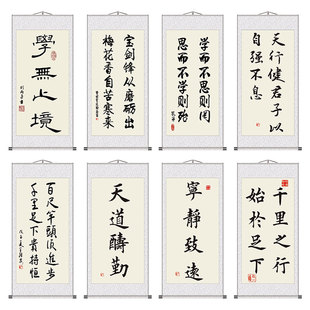 學無止境
宝剑锋从磨砺出
梅花香自苦寒来
学而不思则罔
思而不学则殆
天行健君子以
自强不息
百尺竿頭須進步
千里足下貴持恒
天道醻勤
寧靜致遠
千里之行
始於足下